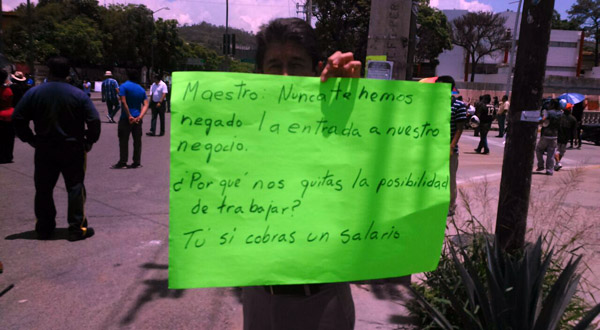 Maestro: Nunca te hemos
negado la entrada a nuestro
negocio.
¿Por qué nos quitas la posibilidad
de trabajar?
Tú si cobras un salario